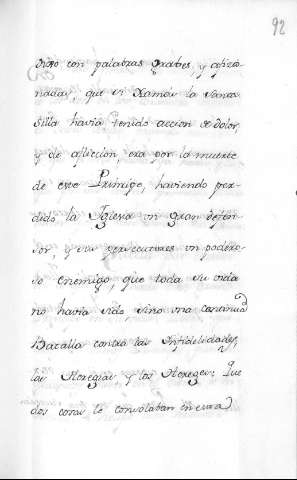 92
dixo con palabras grabes, y apasio
nadas, que si Xamas la Santa
Silla havia tenido accion de dolor,
y de afliccion, era por la muerte
de este Principe, haviendo per-
dido la Iglesia un gran defen-
sor, y sus persecutores un podero-
so enemigo, que toda su vida
no havia sido, sino una continua
Batalla contra las Infidelidades,
las Heregias, y los Hereges: Que
dos cosas le consolaban en esta